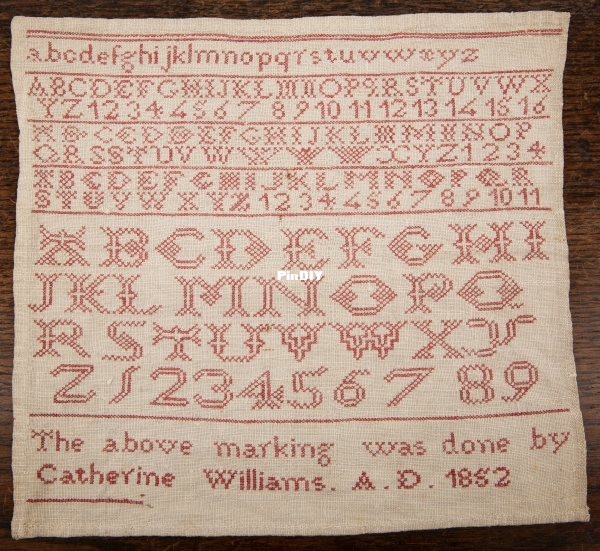 abcdefghijklmnopqrstuvwxyz
ABCDEFGHIJKLMNOPQRSTUVWX
YZ 1 2 3 4 5 6 7 8 9 10 11 12 13 14 15 16
ABCDEFGHIJKLMNOP
QRSSTUVW XYZ 1 2 3 4
ABCDEFGHIJKLMNOPQR
STUVWXYZ 1 2 3 4 5 6 7 8 9 10 11
ABCDEFGHI
PinDIY
JKLMNOPQ
RSTUVWXY
Z 1 2 3 4 5 6 7 8 9
The above marking was done by
Catherine Williams. A.D. 1852